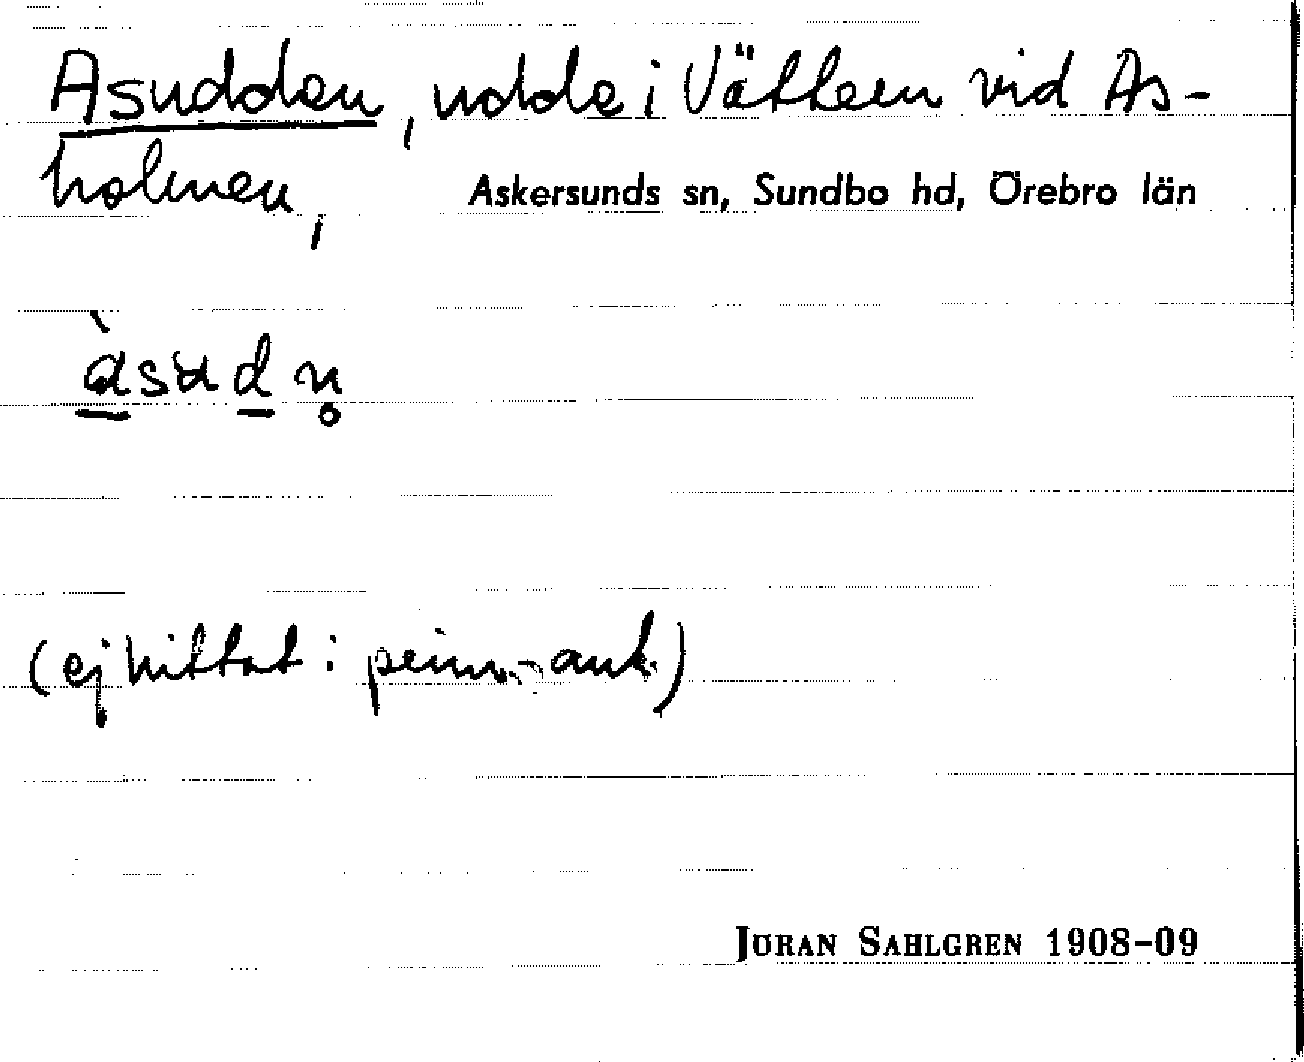 Asudden, udde i Vättern vid As-
holmen, Askersunds sn, Sundbo hd, Örebro län
àsudn̥
(ej hittat i primäruppt.)
JÖRAN SAHLGREN 1908-09